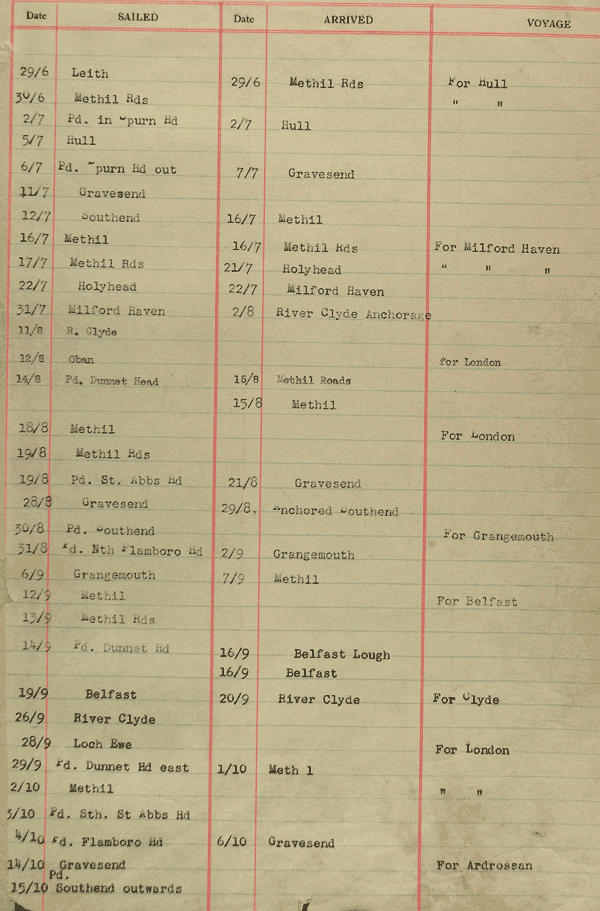 Date SAILED Date ARRIVED VOYAGE
29/6 Leith 29/6 Methil Rds For Hull
30/6 Methil Rds " "
2/7 Pd. in Spurn Hd 2/7 Hull
5/7 Hull
6/7 Pd. Spurn Hd out 7/7 Gravesend
11/7 Gravesend
12/7 Southend 16/7 Methil
16/7 Methil 16/7 Methil Rds For Milford Haven
17/7 Methil Rds 21/7 Holyhead " " "
22/7 Holyhead 22/7 Milford Haven
31/7 Milford Haven 2/8 River Clyde Anchorage
11/8 R. Clyde
12/8 Oban for London
14/8 Pd. Dunnet Head 15/8 Methil Roads
15/8 Methil
18/8 Methil For London
19/8 Methil Rds
19/8 Pd. St. Abbs Hd 21/8 Gravesend
28/8 Gravesend 29/8, Anchored Southend
30/8 Pd. Southend For Grangemouth
31/8 Pd. Nth Flamboro Hd 2/9 Grangemouth
6/9 Grangemouth 7/9 Methil
12/9 Methil For Belfast
13/9 Methil Rds
14/9 Pd. Dunnet Hd 16/9 Belfast Lough
16/9 Belfast
19/9 Belfast 20/9 River Clyde For Clyde
26/9 River Clyde
28/9 Loch Ewe For London
29/9 Pd. Dunnet Hd east 1/10 Meth l
2/10 Methil " "
3/10 Pd. Sth. St Abbs Hd
4/10 Pd. Flamboro Hd 6/10 Gravesend
14/10 Gravesend For Ardrossan
Pd.
15/10 Southend outwards